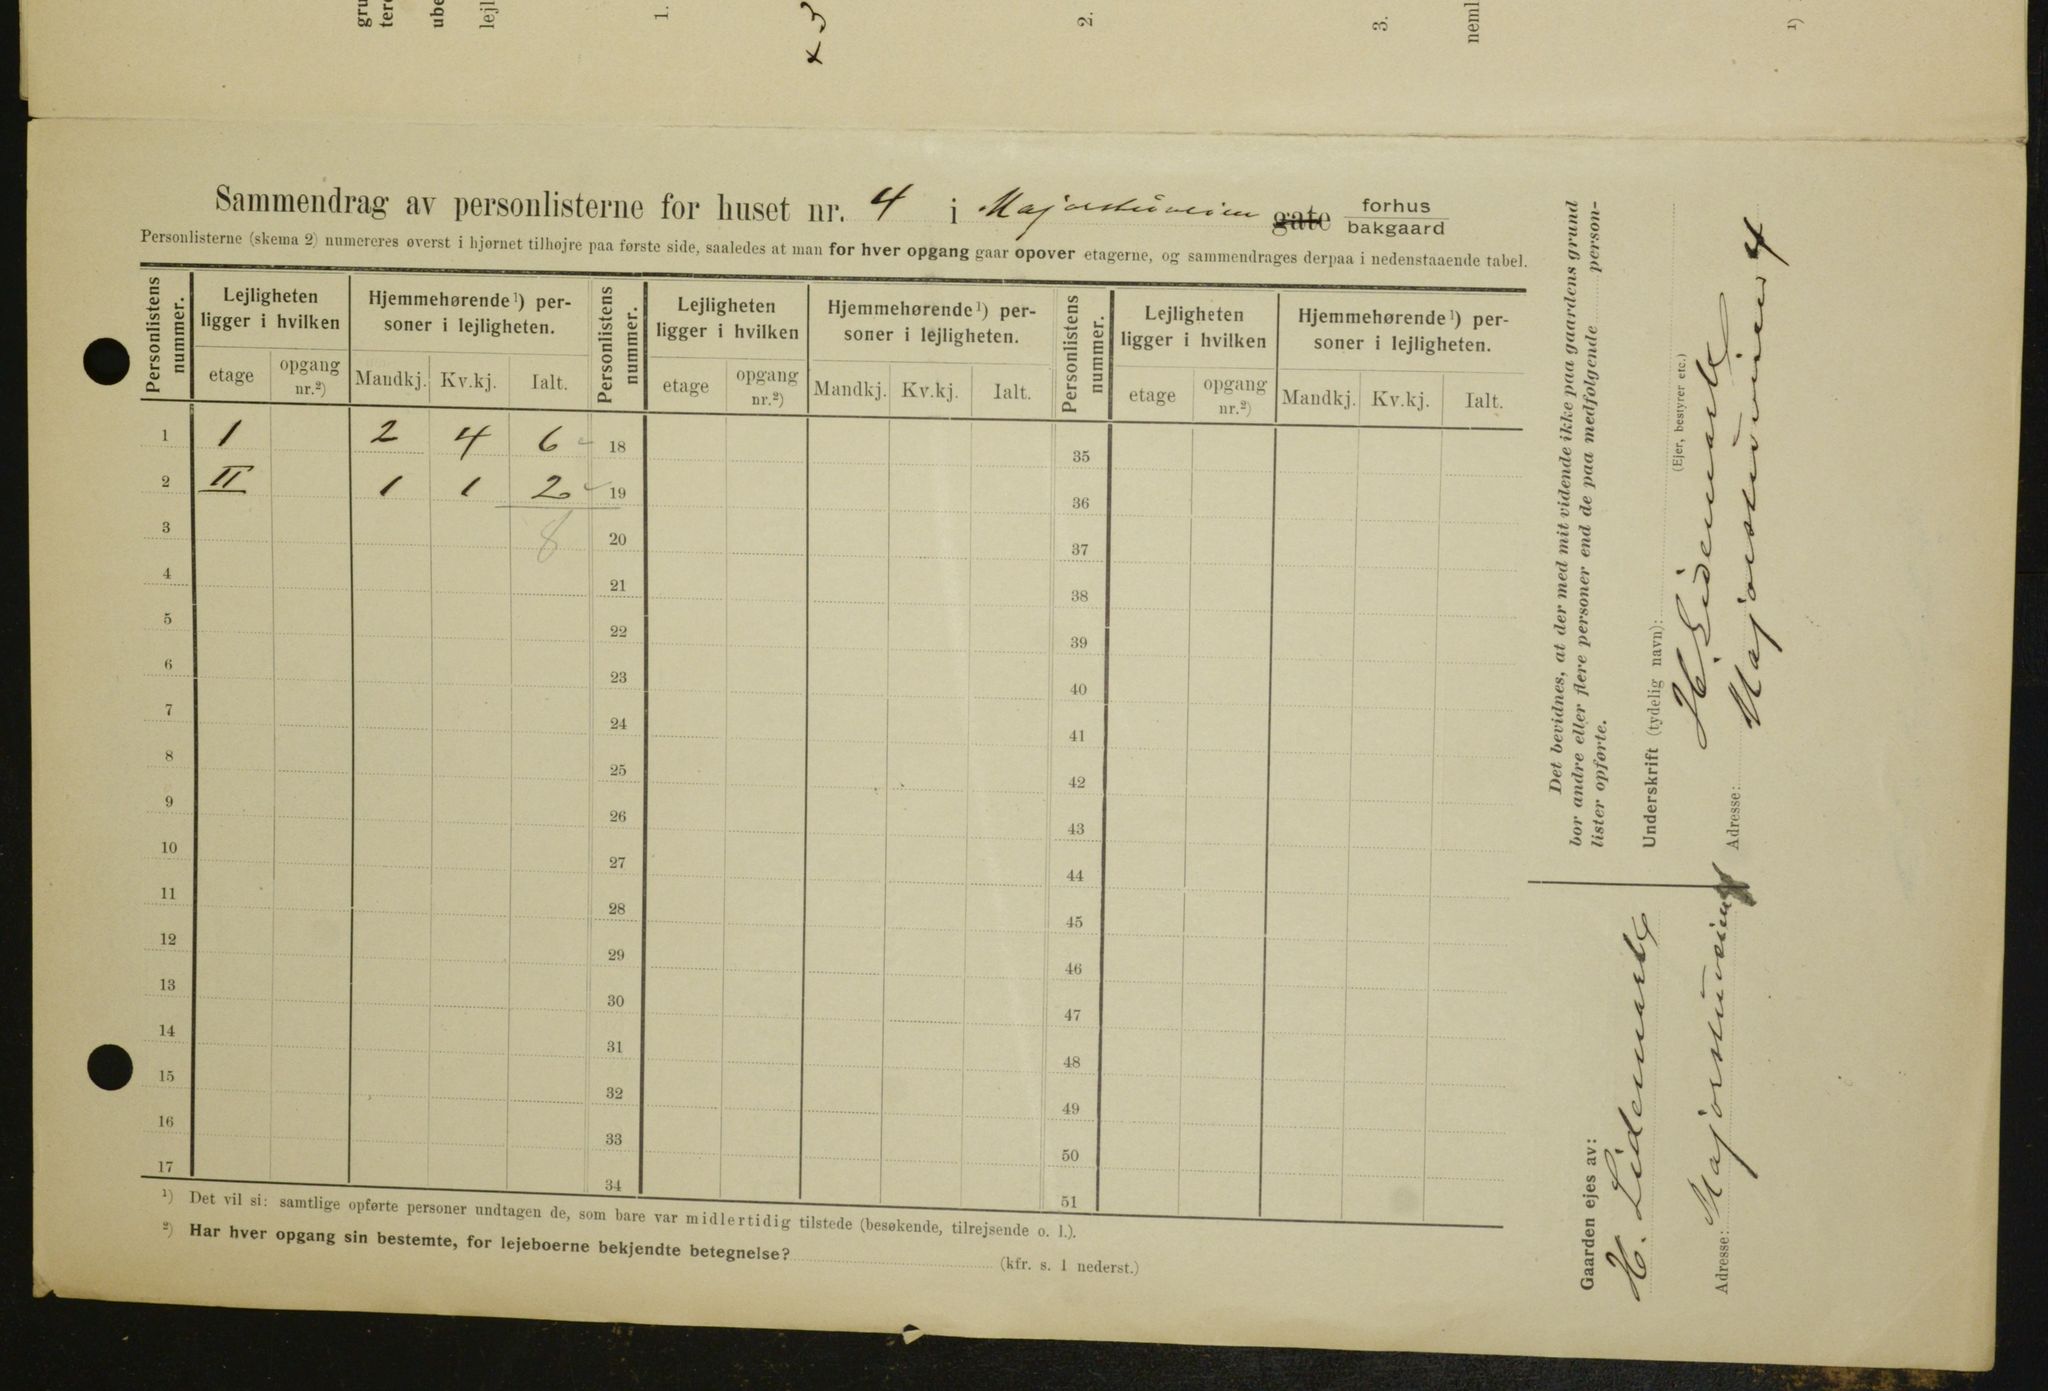 1.
2.
3.
Sammendrag av personlisterne for huset nr. 4 i Majorstuveien gate forhus bakgaard
Personlisterne (skema 2) numereres øverst i hjørnet tilhøjre paa første side, saaledes at man for hver opgang gaar opover etagerne, og sammendrages derpaa i nedenstaaende tabel.
Personlistens nummer. Lejligheten ligger i hvilken Hjemmehørende¹) personer i lejligheten. Personlistens nummer. Lejligheten ligger i hvilken Hjemmehørende¹) personer i lejligheten. Personlistens nummer. Lejligheten ligger i hvilken Hjemmehørende¹) personer i lejligheten.
etage opgang nr.²) Mandkj. Kv.kj. Ialt. etage opgang nr.²) Mandkj. Kv.kj. Ialt. etage opgang nr.²) Mandkj. Kv.kj. Ialt.
1 1 2 4 6 18 35
2 II 1 1 2 19 36
3 8 20 37
4 21 38
5 22 39
6 23 40
7 24 41
8 25 42
9 26 43
10 27 44
11 28 45
12 29 46
13 30 47
14 31 48
15 32 49
16 33 50
17 34 51
¹) Det vil si: samtlige opførte personer undtagen de, som bare var midlertidig tilstede (besøkende, tilrejsende o. l.).
²) Har hver opgang sin bestemte, for lejeboerne bekjendte betegnelse? (kfr. s. 1 nederst.)
Det bevidnes, at der med mit vidende ikke paa gaardens grund
bor andre eller flere personer end de paa medfølgende person-
lister opførte.
Underskrift (tydelig navn):
(Ejer, bestyrer etc.)
H. Lidemark
Adresse: Majorstuveien 4
Gaarden ejes av:
H. Lidemark
Adresse: Majorstuveien 4